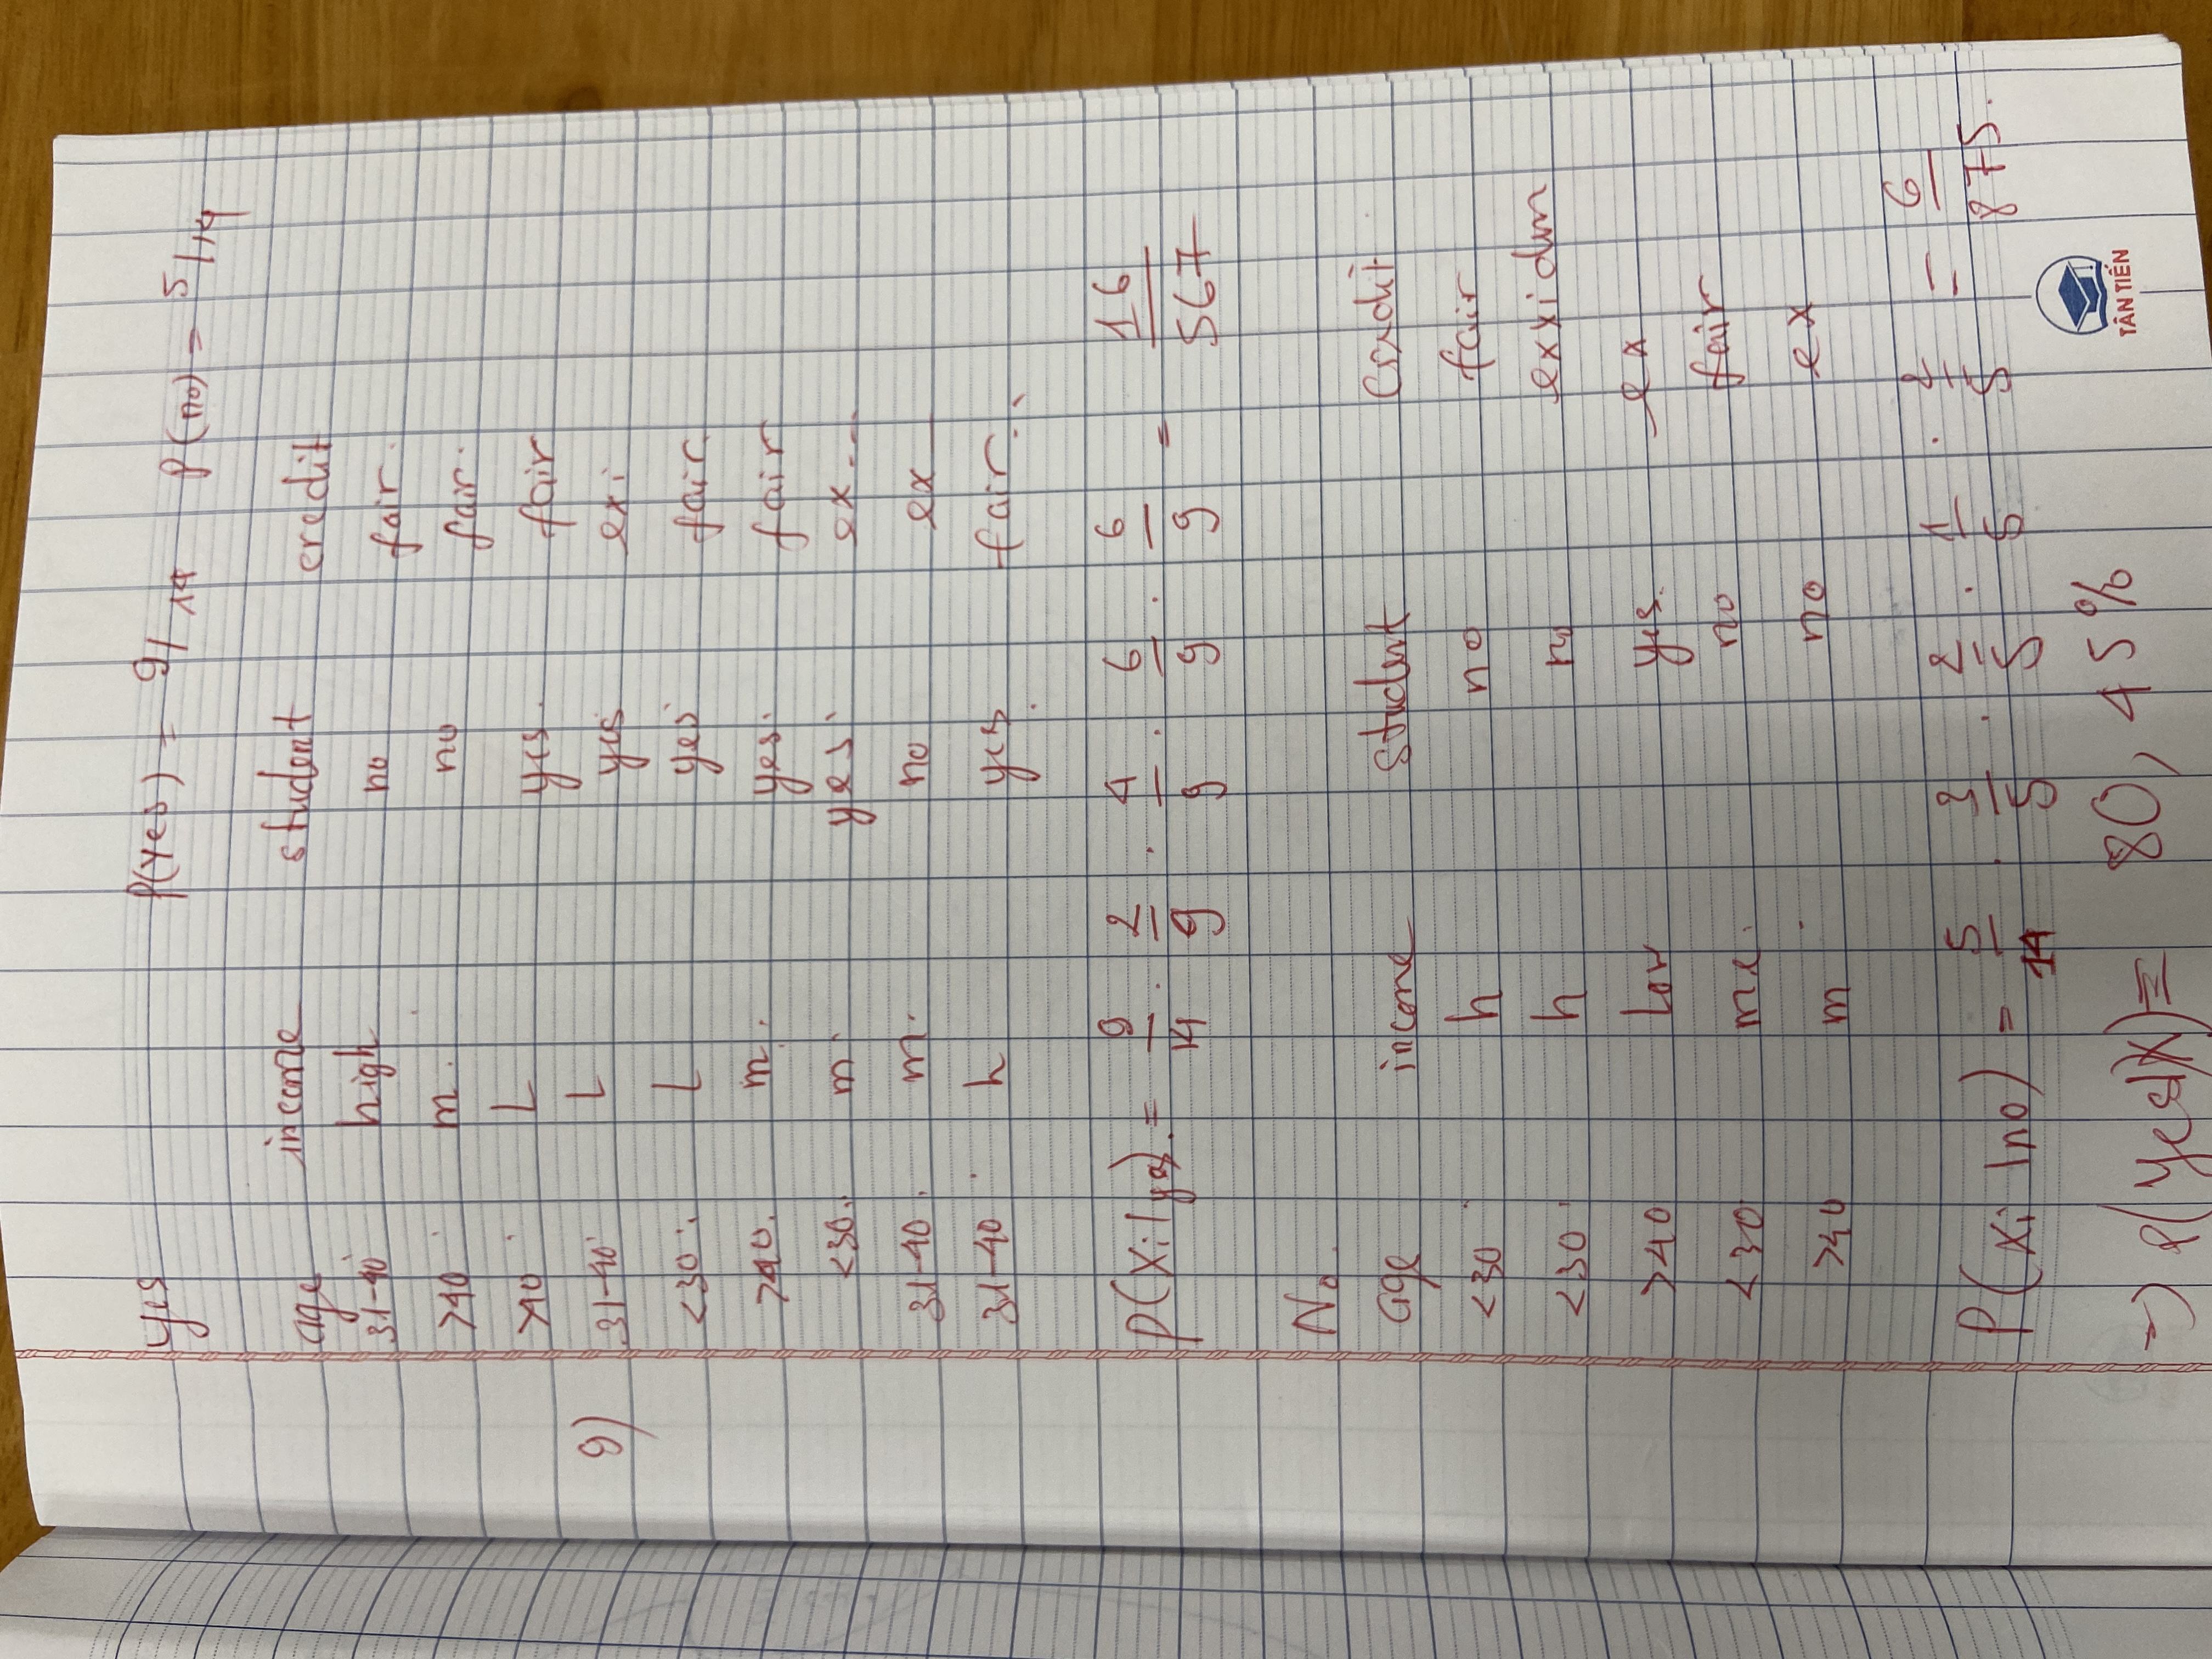 yes P(yes) = 9/14 P(no) = 5/14
age income student credit
31-40 high no fair.
>40 m. no fair.
>40 L yes. fair
9) 31-40 L yes exi
<30 L yes fair.
>40. m. yes. fair
<30. m yes ex...
31-40. m. no ex
31-40 h yes fair..
P(Xi|yes) = 9/14 . 2/9 . 4/9 . 6/9 . 6/9 = 16/567
No
age income student credit
<30 h no fair
<30 h no exxidm
>40 Low yes. ex
<30 me. no fair
>40 m no ex
P(xi|no) = 5/14 . 3/5 . 2/5 . 1/5 . 2/5 = 6/875.
=> P(yes|X) = 80,45%
TÂN TIẾN